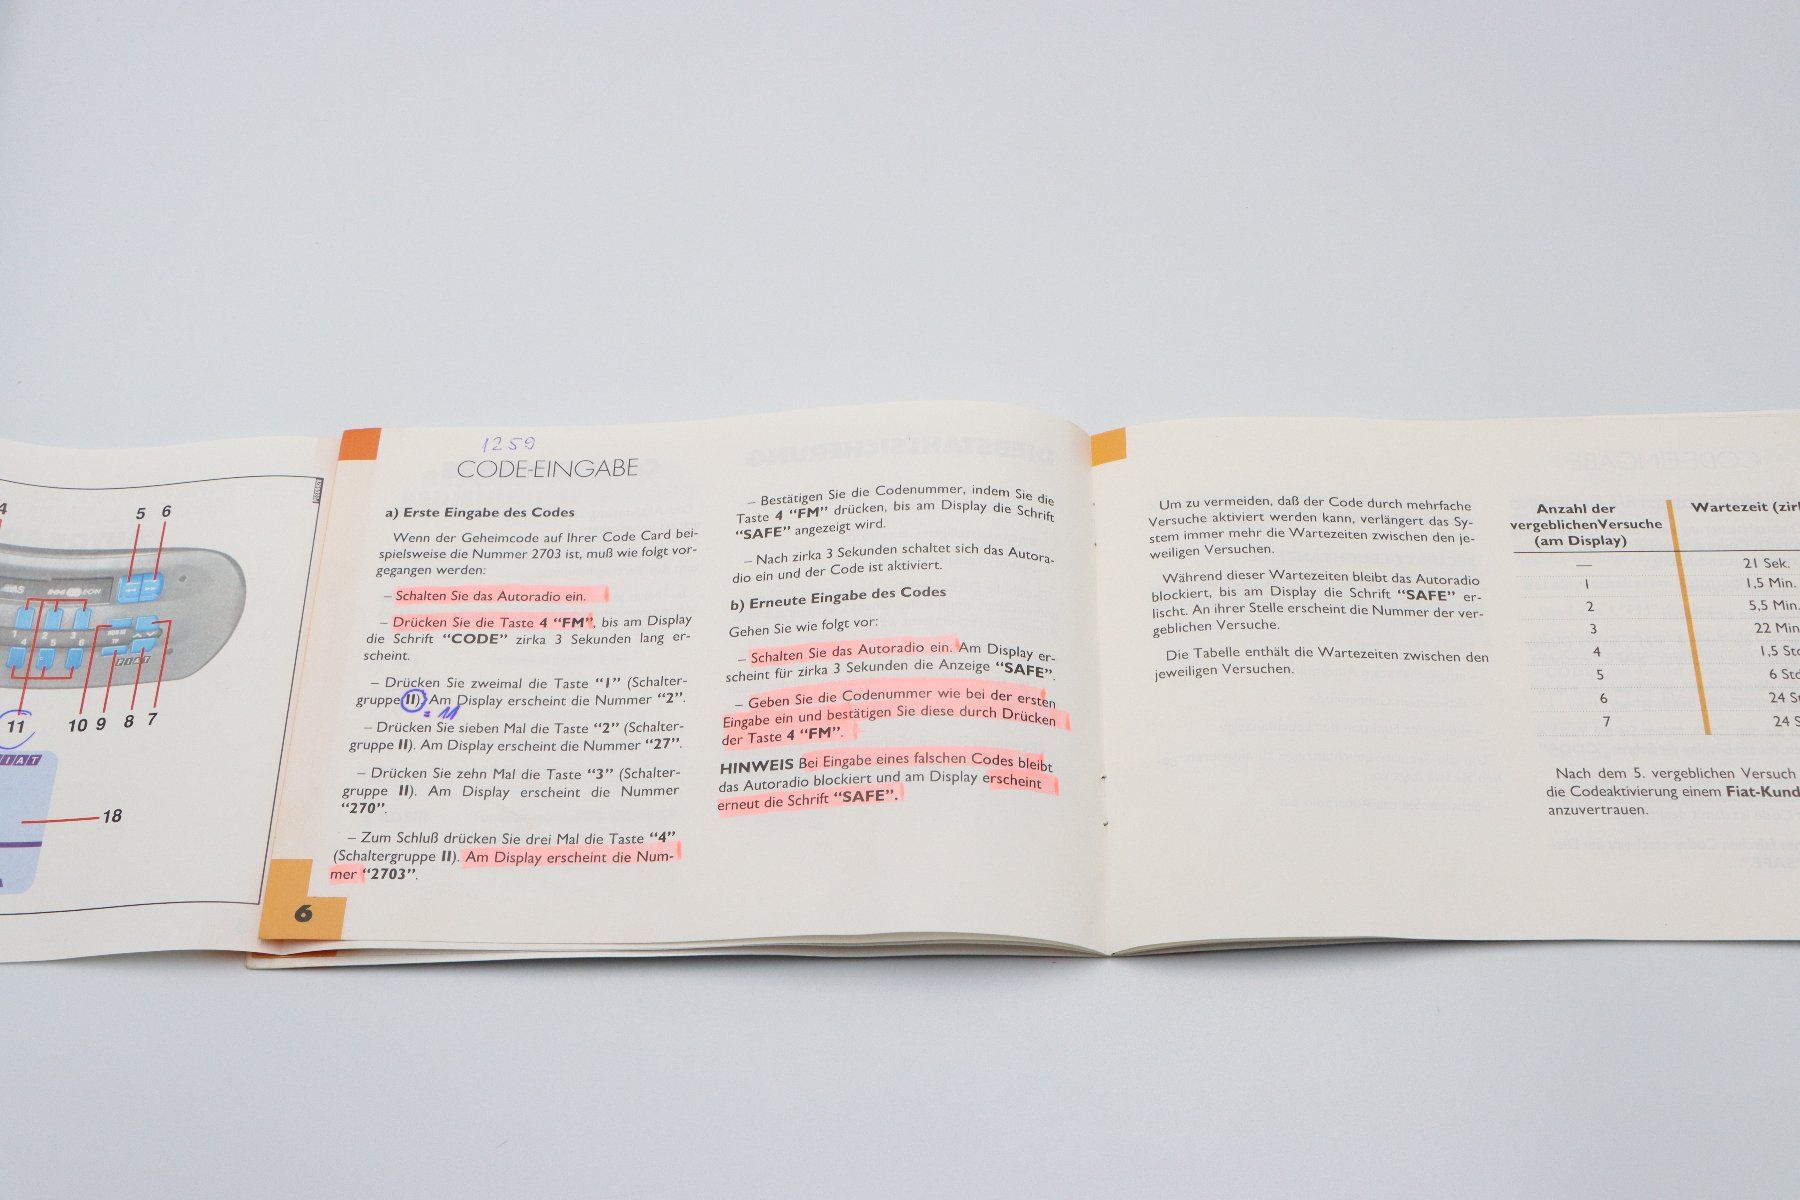 4
5 6
1 2 3
4 5 6
TP
FIAT
11 10 9 8 7
FIAT
18
1259
CODE-EINGABE
a) Erste Eingabe des Codes
Wenn der Geheimcode auf Ihrer Code Card bei-
spielsweise die Nummer 2703 ist, muß wie folgt vor-
gegangen werden:
– Schalten Sie das Autoradio ein.
– Drücken Sie die Taste 4 “FM”, bis am Display
die Schrift “CODE” zirka 3 Sekunden lang er-
scheint.
– Drücken Sie zweimal die Taste “1” (Schalter-
gruppe II). Am Display erscheint die Nummer “2”.
= 11
– Drücken Sie sieben Mal die Taste “2” (Schalter-
gruppe II). Am Display erscheint die Nummer “27”.
– Drücken Sie zehn Mal die Taste “3” (Schalter-
gruppe II). Am Display erscheint die Nummer
“270”.
– Zum Schluß drücken Sie drei Mal die Taste “4”
(Schaltergruppe II). Am Display erscheint die Num-
mer “2703”.
6
– Bestätigen Sie die Codenummer, indem Sie die
Taste 4 “FM” drücken, bis am Display die Schrift
“SAFE” angezeigt wird.
– Nach zirka 3 Sekunden schaltet sich das Autora-
dio ein und der Code ist aktiviert.
b) Erneute Eingabe des Codes
Gehen Sie wie folgt vor:
– Schalten Sie das Autoradio ein. Am Display er-
scheint für zirka 3 Sekunden die Anzeige “SAFE”.
– Geben Sie die Codenummer wie bei der ersten
Eingabe ein und bestätigen Sie diese durch Drücken
der Taste 4 “FM”.
HINWEIS Bei Eingabe eines falschen Codes bleibt
das Autoradio blockiert und am Display erscheint
erneut die Schrift “SAFE”.
Um zu vermeiden, daß der Code durch mehrfache
Versuche aktiviert werden kann, verlängert das Sy-
stem immer mehr die Wartezeiten zwischen den je-
weiligen Versuchen.
Während dieser Wartezeiten bleibt das Autoradio
blockiert, bis am Display die Schrift “SAFE” er-
lischt. An ihrer Stelle erscheint die Nummer der ver-
geblichen Versuche.
Die Tabelle enthält die Wartezeiten zwischen den
jeweiligen Versuchen.
Anzahl der Wartezeit (zir
vergeblichenVersuche
(am Display)
— 21 Sek.
1 1,5 Min.
2 5,5 Min.
3 22 Min
4 1,5 Std
5 6 Std
6 24 S
7 24 S
Nach dem 5. vergeblichen Versuch
die Codeaktivierung einem Fiat-Kund
anzuvertrauen.